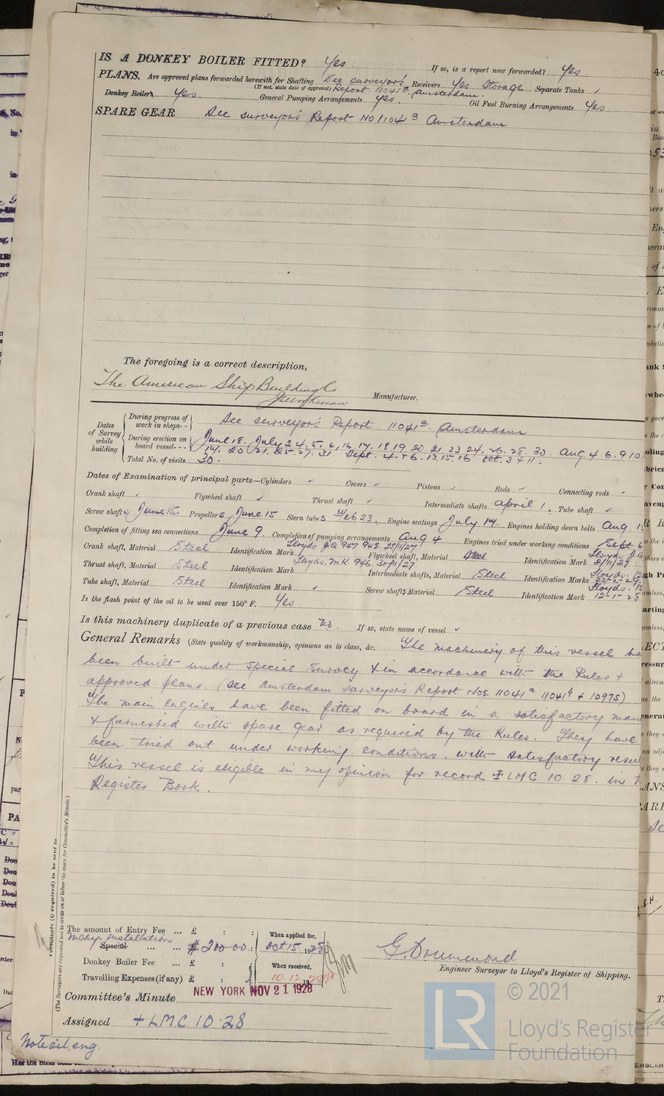 IS A DONKEY BOILER FITTED? Yes. If so, is a report now forwarded? Yes
PLANS. Are approved plans forwarded herewith for Shafting See surveyors Receivers Yes Storage Separate Tanks "
(If not, state date of approval) Report 11041a Amsterdam.
Donkey Boilers Yes. General Pumping Arrangements Yes. Oil Fuel Burning Arrangements Yes
SPARE GEAR See surveyors Report No 11041a Amsterdam
The foregoing is a correct description,
The American Ship Building Co
Manufacturer.
Dates of Survey while building
During progress of work in shops-- See surveyor's Report 11041a Amsterdam
During erection on board vessel--- June 18. July 2 4. 5. 6, 16, 17. 18 19. 20 21 23 24. 26. 28. 30. Aug 4 6. 9 10
14. 20 21. 25. 27. 31 Sept. 4. 6. 13. 15. 16 Oct. 3 + 11.
Total No. of visits 30.
Dates of Examination of principal parts—Cylinders " Covers " Pistons " Rods " Connecting rods "
Crank shaft " Flywheel shaft " Thrust shaft " Intermediate shafts April 1. Tube shaft "
Screw shafts June 15. Propellers June 15 Stern tubes Feb 23. Engine seatings July 14. Engines holding down bolts Aug.
Completion of fitting sea connections June 9 Completion of pumping arrangements Aug 4 Engines tried under working conditions Sept 6
Crank shaft, Material Steel Identification Mark Lloyds JQ 947 948 25/11/27 Flywheel shaft, Material Steel Identification Mark Lloyds
Thrust shaft, Material Steel Identification Mark Lloyds. MK 946 Intermediate shafts, Material Steel Identification Marks Lloyds.
Tube shaft, Material Steel Identification Mark " Screw shafts Material Steel Identification Mark 12-1-28
Is the flash point of the oil to be used over 150° F. Yes.
Is this machinery duplicate of a previous case No. If so, state name of vessel "
General Remarks (State quality of workmanship, opinions as to class, &c. The machinery of this vessel ha
been built under Special Survey & in accordance with the Rules +
approved plans. (See Amsterdam surveyor's Report Nos. 11041a 11041b + 10975)
The main engines have been fitted on board in a satisfactory man
& furnished with spare gear as required by the Rules. They have
been tried out under working conditions. with satisfactory resu
This vessel is eligible in my opinion for record +LMC 10.28. in
Register Book.
(The Surveyors are requested not to write on or below the space for Committee's Minute.)
The amount of Entry Fee ... £ : : When applied for,
Mchy. installation
Special ... ... $ 200.00 : Oct 15, 1928
Donkey Boiler Fee ... £ : : When received,
Travelling Expenses (if any) £ : : 10.12.1928
G. Drummond
Engineer Surveyor to Lloyd's Register of Shipping.
Committee's Minute NEW YORK NOV 21 1928
Assigned + LMC. 10.28
© 2021
LR Lloyd's Register
Foundation